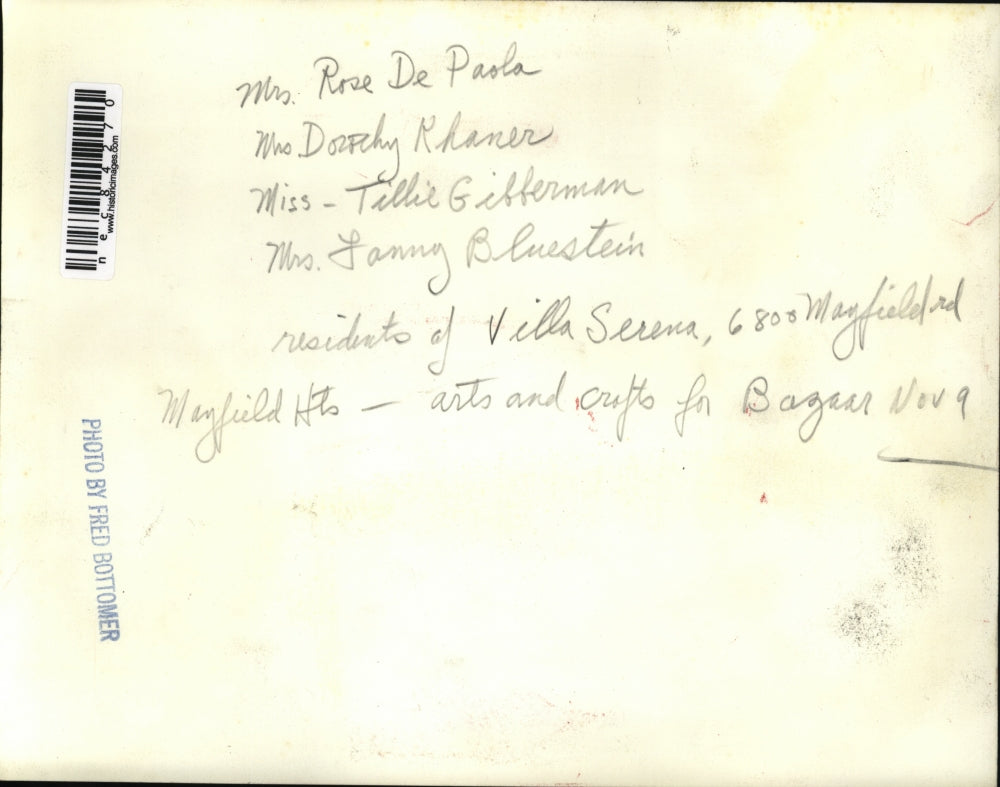 Mrs. Rose De Paola
Mrs Dorothy Khaner
Miss - Tillie Gibberman
Mrs. Fanny Bluestein
residents of Villa Serena, 6800 Mayfield rd
Mayfield Hts — arts and crafts for Bazaar Nov 9
nec84270
www.historicimages.com
PHOTO BY FRED BOTTOMER